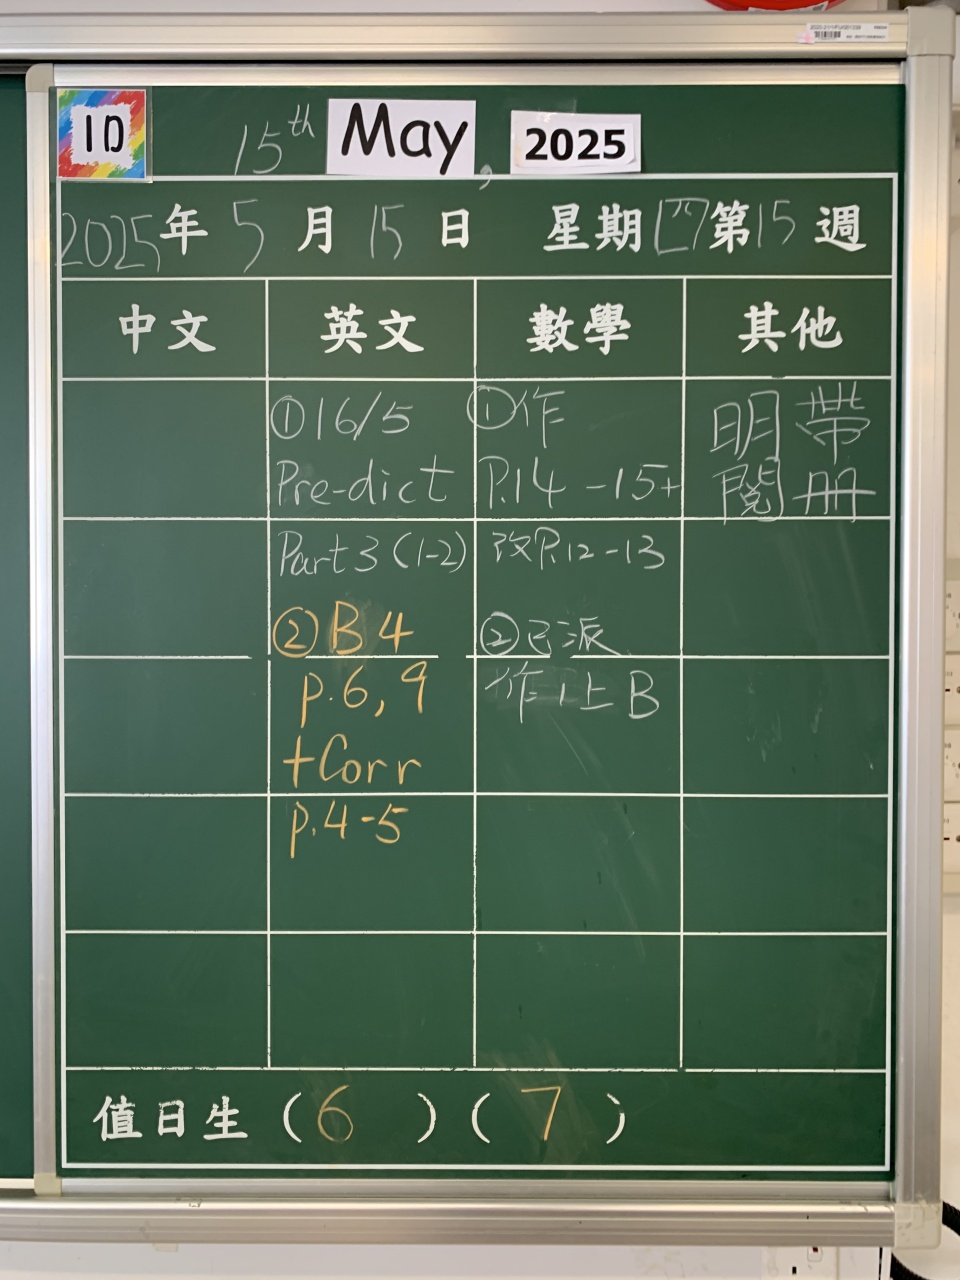 1D
15th May, 2025
2025年5月15日 星期四第15週
中文 英文 數學 其他
①16/5
Pre-dict
Part 3 (1-2)
②B4
p.6, 9
+Corr
p.4-5
①作
P.14-15+
改P.12-13
②已派
作1上B
明帶
閱冊
值日生 (6) (7)